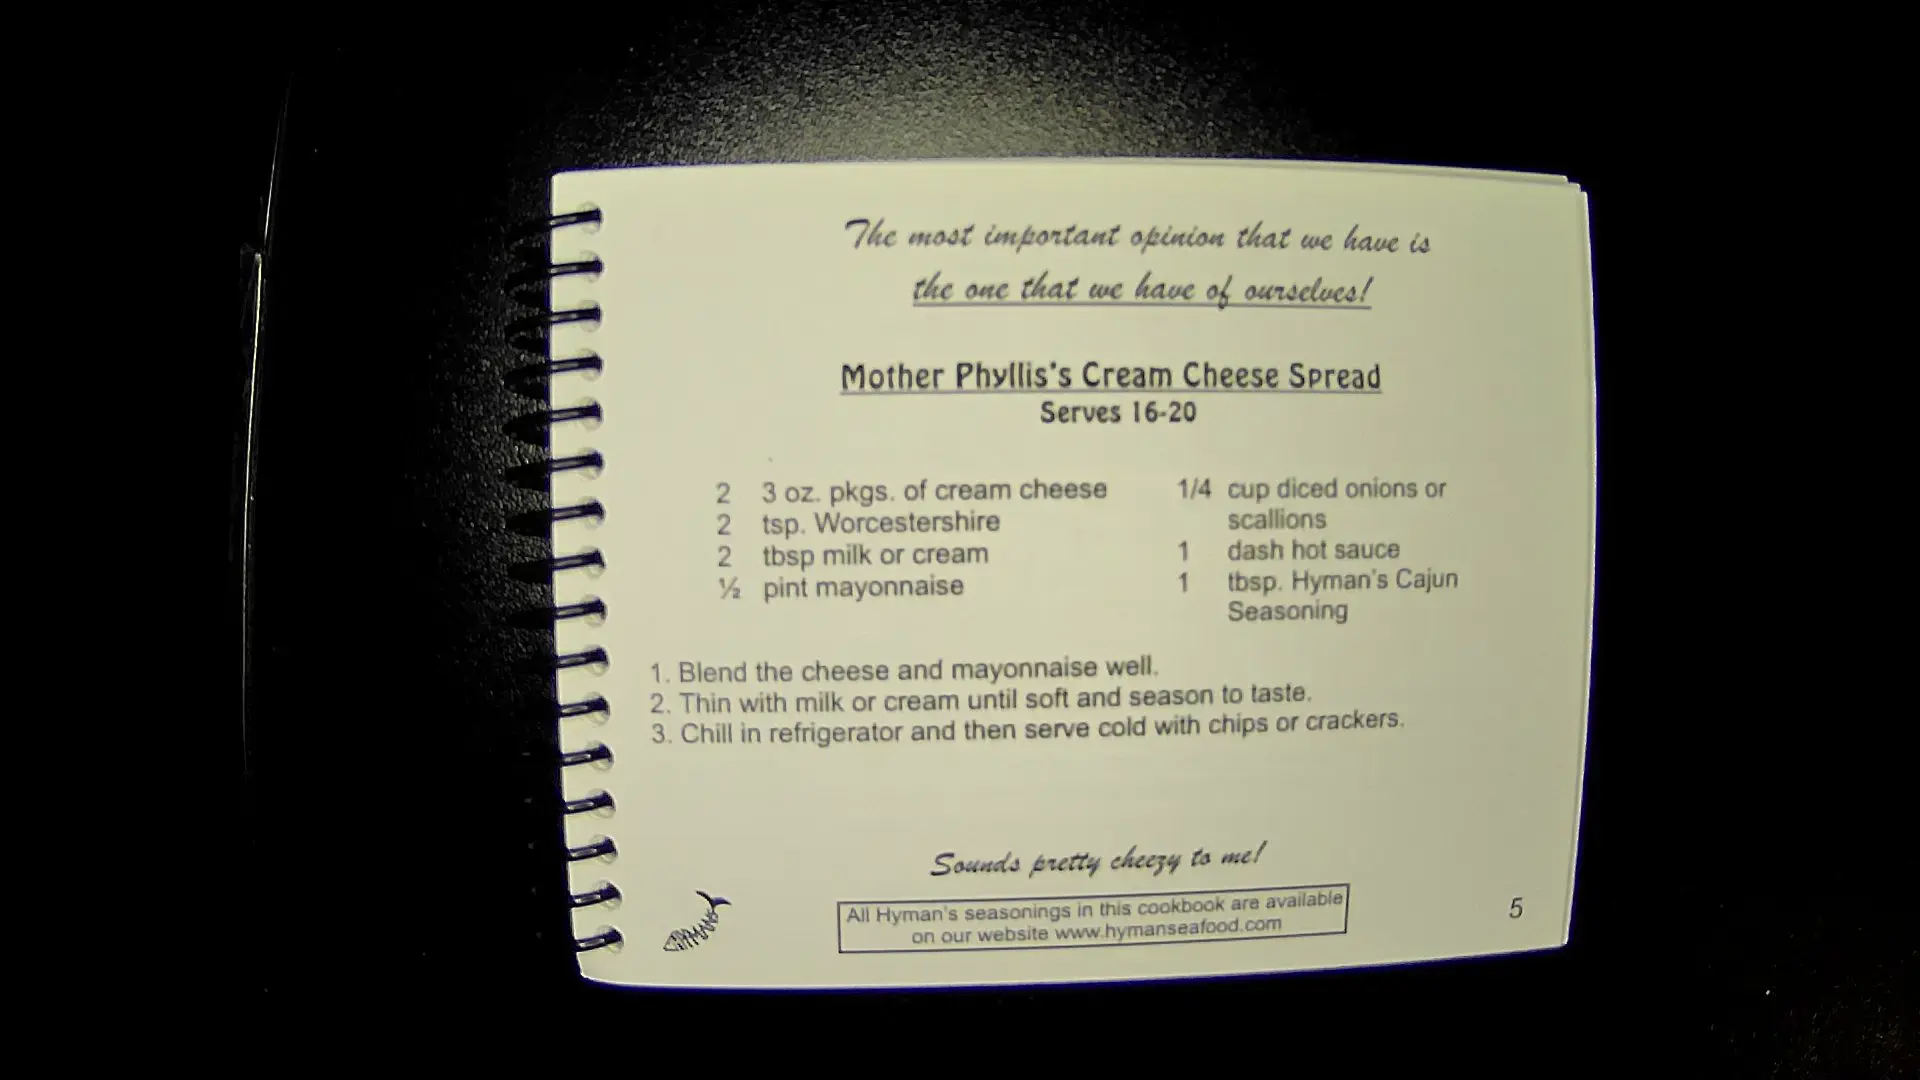 The most important opinion that we have is
the one that we have of ourselves!
Mother Phyllis's Cream Cheese Spread
Serves 16-20
2 3 oz. pkgs. of cream cheese
2 tsp. Worcestershire
2 tbsp milk or cream
½ pint mayonnaise
1/4 cup diced onions or
scallions
1 dash hot sauce
1 tbsp. Hyman's Cajun
Seasoning
1. Blend the cheese and mayonnaise well.
2. Thin with milk or cream until soft and season to taste.
3. Chill in refrigerator and then serve cold with chips or crackers.
Sounds pretty cheezy to me!
HYMANS
All Hyman's seasonings in this cookbook are available
on our website www.hymanseafood.com
5